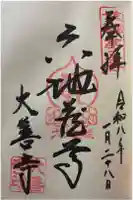 奉拝
令和八年
一月二十八日
六地蔵尊
大善寺